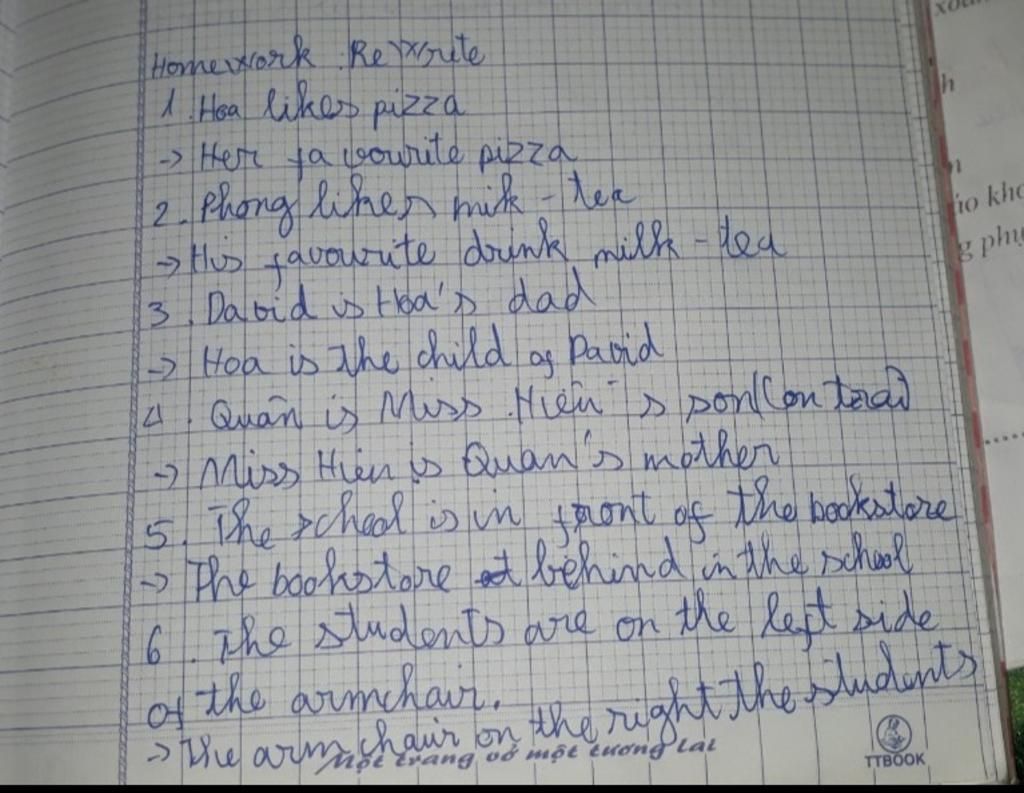 Homework : Rewrite
1. Hoa likes pizza
-> Her favourite pizza
2. Phong likes milk - tea
-> His favourite drink milk - tea
3. David is Hoa's dad
-> Hoa is the child of David
4. Quân is Miss Hiền's son (con trai)
-> Miss Hiên is Quân's mother
5. The school is in front of the bookstore
-> The bookstore behind in the school
6. The students are on the left side
of the armchair.
-> The armchair on the right the students
Một trang vở một tương lai
TTBOOK
h
ảo kh
g phụ